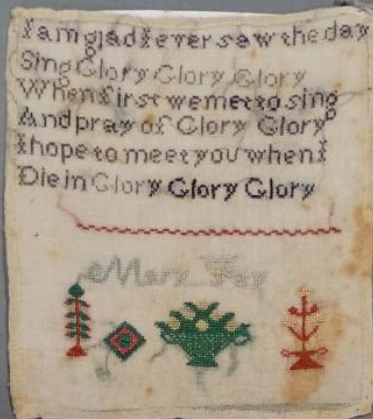 I am glad I ever saw the day
Sing Glory Glory Glory
When first we met to sing
And pray of Glory Glory
I hope to meet you when I
Die in Glory Glory Glory
Mary